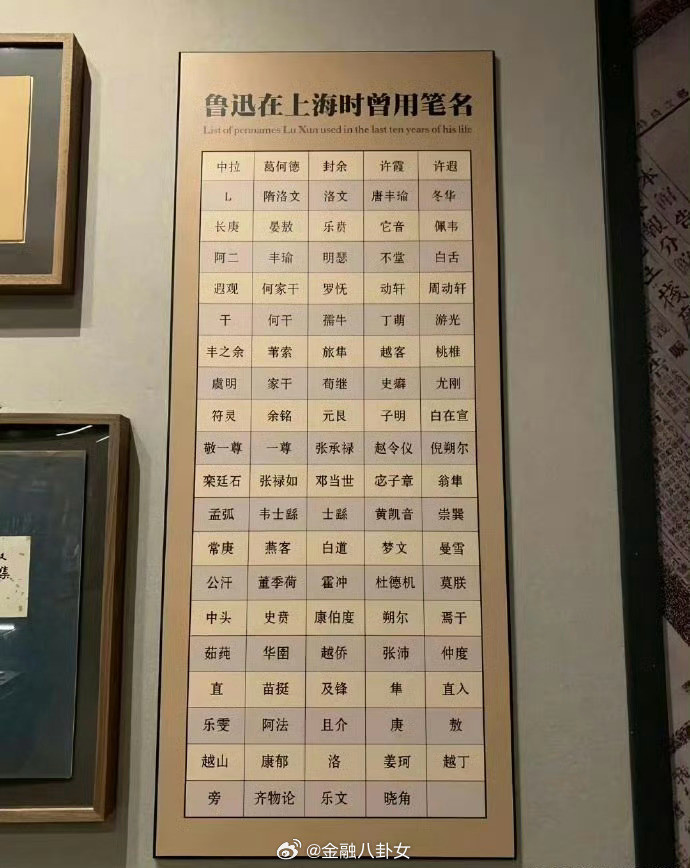 鲁迅在上海时曾用笔名
List of pennames Lu Xun used in the last ten years of his life
中拉 葛何德 封余 许霞 许遐
L 隋洛文 洛文 唐丰瑜 冬华
长庚 晏敖 乐贲 它音 佩韦
阿二 丰瑜 明瑟 不堂 白舌
遐观 何家干 罗怃 动轩 周动轩
干 何干 孺牛 丁萌 游光
丰之余 苇索 旅隼 越客 桃椎
虞明 家干 荀继 史癖 尤刚
符灵 余铭 元艮 子明 白在宣
敬一尊 一尊 张承禄 赵令仪 倪朔尔
栾廷石 张禄如 邓当世 宓子章 翁隼
孟弧 韦士繇 士繇 黄凯音 崇巽
常庚 燕客 白道 梦文 曼雪
公汗 董季荷 霍冲 杜德机 莫朕
中头 史贲 康伯度 朔尔 焉于
茹莼 华圉 越侨 张沛 仲度
直 苗挺 及锋 隼 直入
乐雯 阿法 且介 庚 敖
越山 康郁 洛 姜珂 越丁
旁 齐物论 乐文 晓角
集
本
報
分
告
棧
@金融八卦女